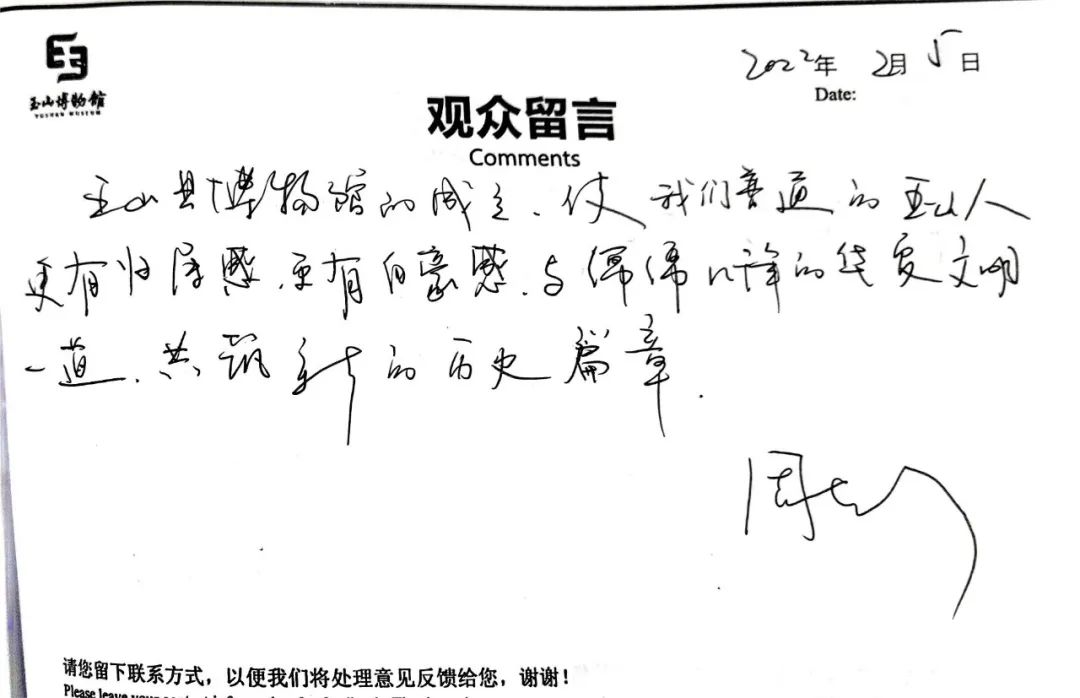 玉山博物馆
YUSHAN MUSEUM
2022年 2月 5日
Date:
观众留言
Comments
玉山县博物馆的成立、使我们普通的玉山人
更有归属感、更有自豪感、与儒儒以泽的华夏文明
一道、共筑新的历史篇章.
周
请您留下联系方式，以便我们将处理意见反馈给您，谢谢！
Please leave your